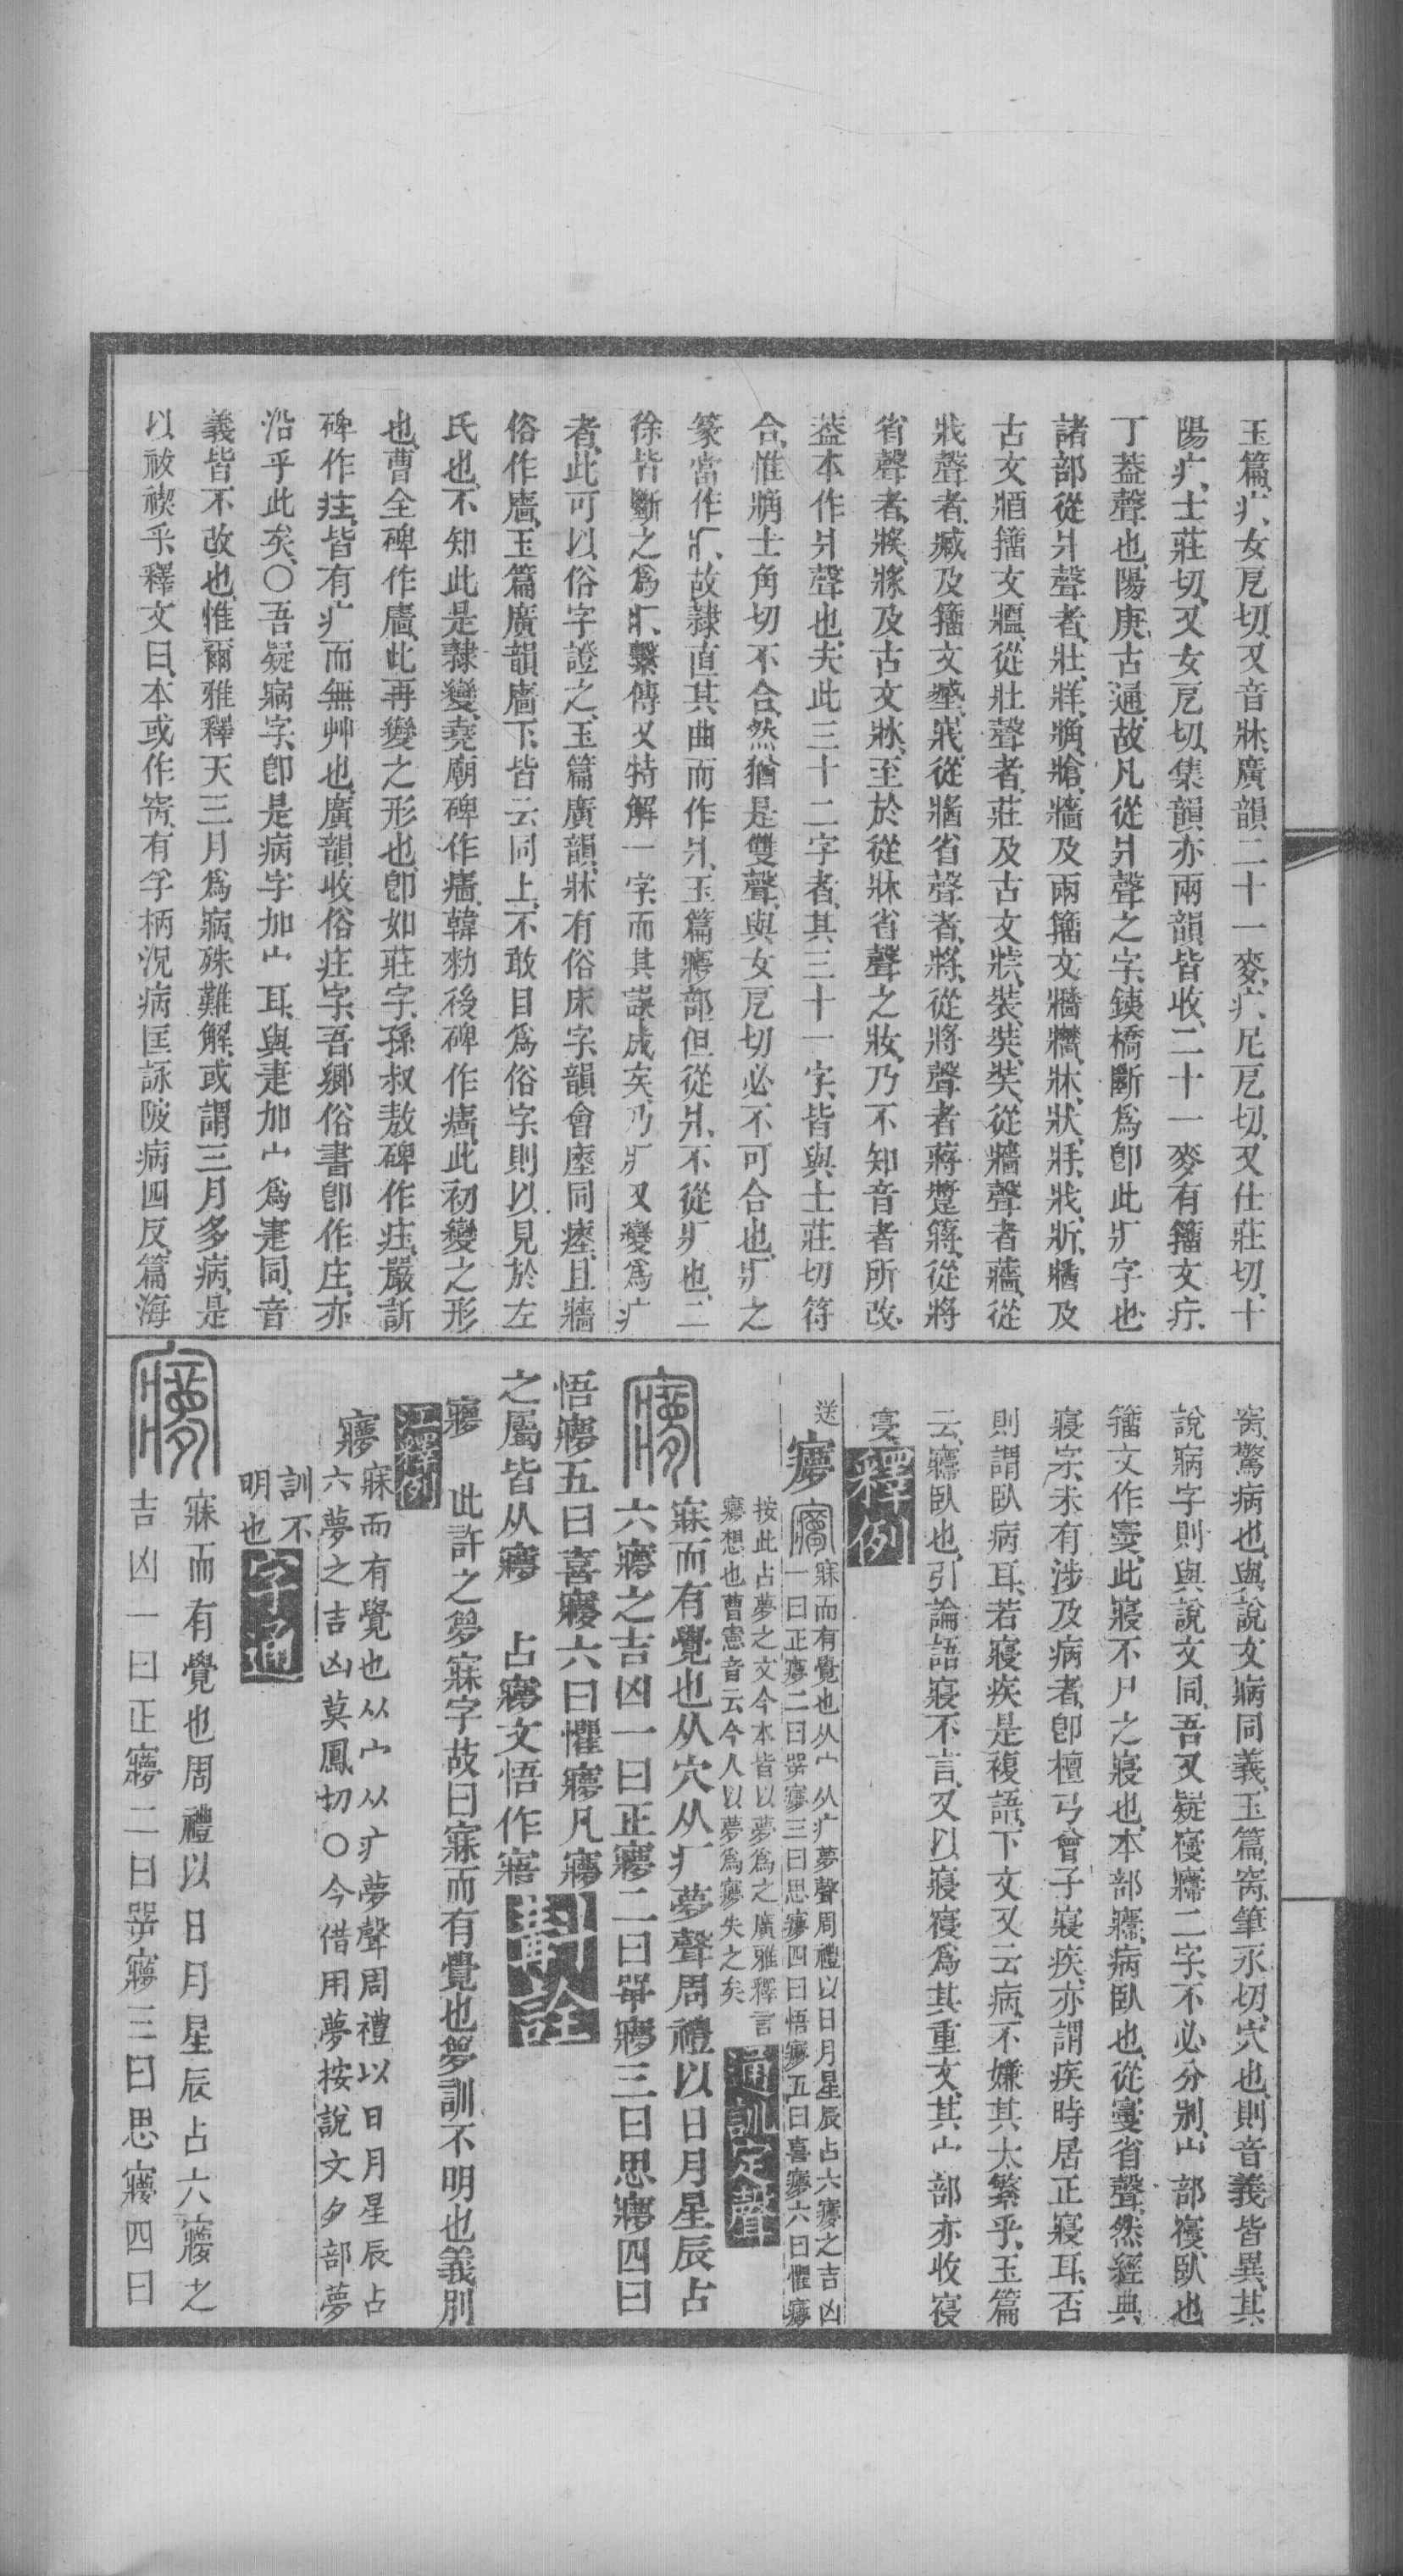 玉篇疒女戹切又音牀廣韻二十一麥疒尼戹切又仕莊切十
陽疒士莊切又女戹切集韻亦兩韻皆收二十一麥有籀文疔
丁葢聲也陽庚古通故凡從爿聲之字鉉橋斷爲卽此疒字也
諸部從爿聲者壯牂牄牆及兩籀文牀狀將戕斨牆及
古文牆籀文從壯聲者莊及古文裝奘從牆聲者蘠從
戕聲者臧及籀文從牆省聲者將從將聲者蔣從將
省聲者漿及古文至於從牀省聲之妝乃不知音者所改
葢本作爿聲也夫此三十二字者其三十一字皆與士莊切符
合惟士角切不合然猶是雙聲與女戹切必不可合也疒之
篆當作疒故隸直其曲而作爿玉篇㝱部但從爿不從疒也二
徐皆斷之爲疒繫傳又特解一字而其誤成矣乃疒又變爲疒
者此可以俗字證之玉篇廣韻牀有俗床字韻會同且牆
俗作廧玉篇廣韻廧下皆云同上不敢目爲俗字則以見於左
氏也不知此是隸變堯廟碑作韓勑後碑作此初變之形
也曹全碑作廧此再變之形也卽如莊字孫叔敖碑作嚴訢
碑作皆有疒而無艸也廣韻收俗字吾鄉俗書卽作庄亦
沿乎此矣○吾疑寎字卽是病字加宀耳與疌加宀爲寁同音
義皆不改也惟爾雅釋天三月爲寎殊難解或謂三月多病是
以祓禊乎釋文曰本或作窉有孚柄況病匡詠陂病四反篇海
窉驚病也與說文寎同義玉篇窉筆永切穴也則音義皆異其
說寎字則與說文同吾又疑寑㝲二字不必分别宀部寑臥也
籀文作此寢不尸之寢也本部㝲病臥也從㝱省聲然經典
寢字未有涉及病者卽檀弓曾子寢疾亦謂疾時居正寢耳否
則謂臥病耳若寢疾是複語下文又云病不嫌其太繁乎玉篇
云㝲臥也引論語寢不言又以寢寑爲其重文其宀部亦收寑
釋例
送㝱寐而有覺也从宀从疒夢聲周禮以日月星辰占六㝱之吉凶
一曰正㝱二曰㖾㝱三曰思㝱四曰悟㝱五曰喜㝱六曰懼㝱
按此占夢之文今本皆以夢爲之廣雅釋言
㝱想也曹憲音云今人以夢爲㝱失之矣通訓定聲
寐而有覺也从穴从疒夢聲周禮以日月星辰占
六㝱之吉凶一曰正㝱二曰㖾㝱三曰思㝱四曰
悟㝱五曰喜㝱六曰懼㝱凡㝱
之屬皆从㝱　占㝱文悟作寤斠詮
㝱　此許之夢寐字故曰寐而有覺也夢訓不明也義別
江釋例
㝱寐而有覺也从宀从疒夢聲周禮以日月星辰占
六夢之吉凶莫鳳切○今借用夢按說文夕部夢
訓不
明也字通
寐而有覺也周禮以日月星辰占六㝱之
吉凶一曰正㝱二曰㖾㝱三曰思㝱四曰